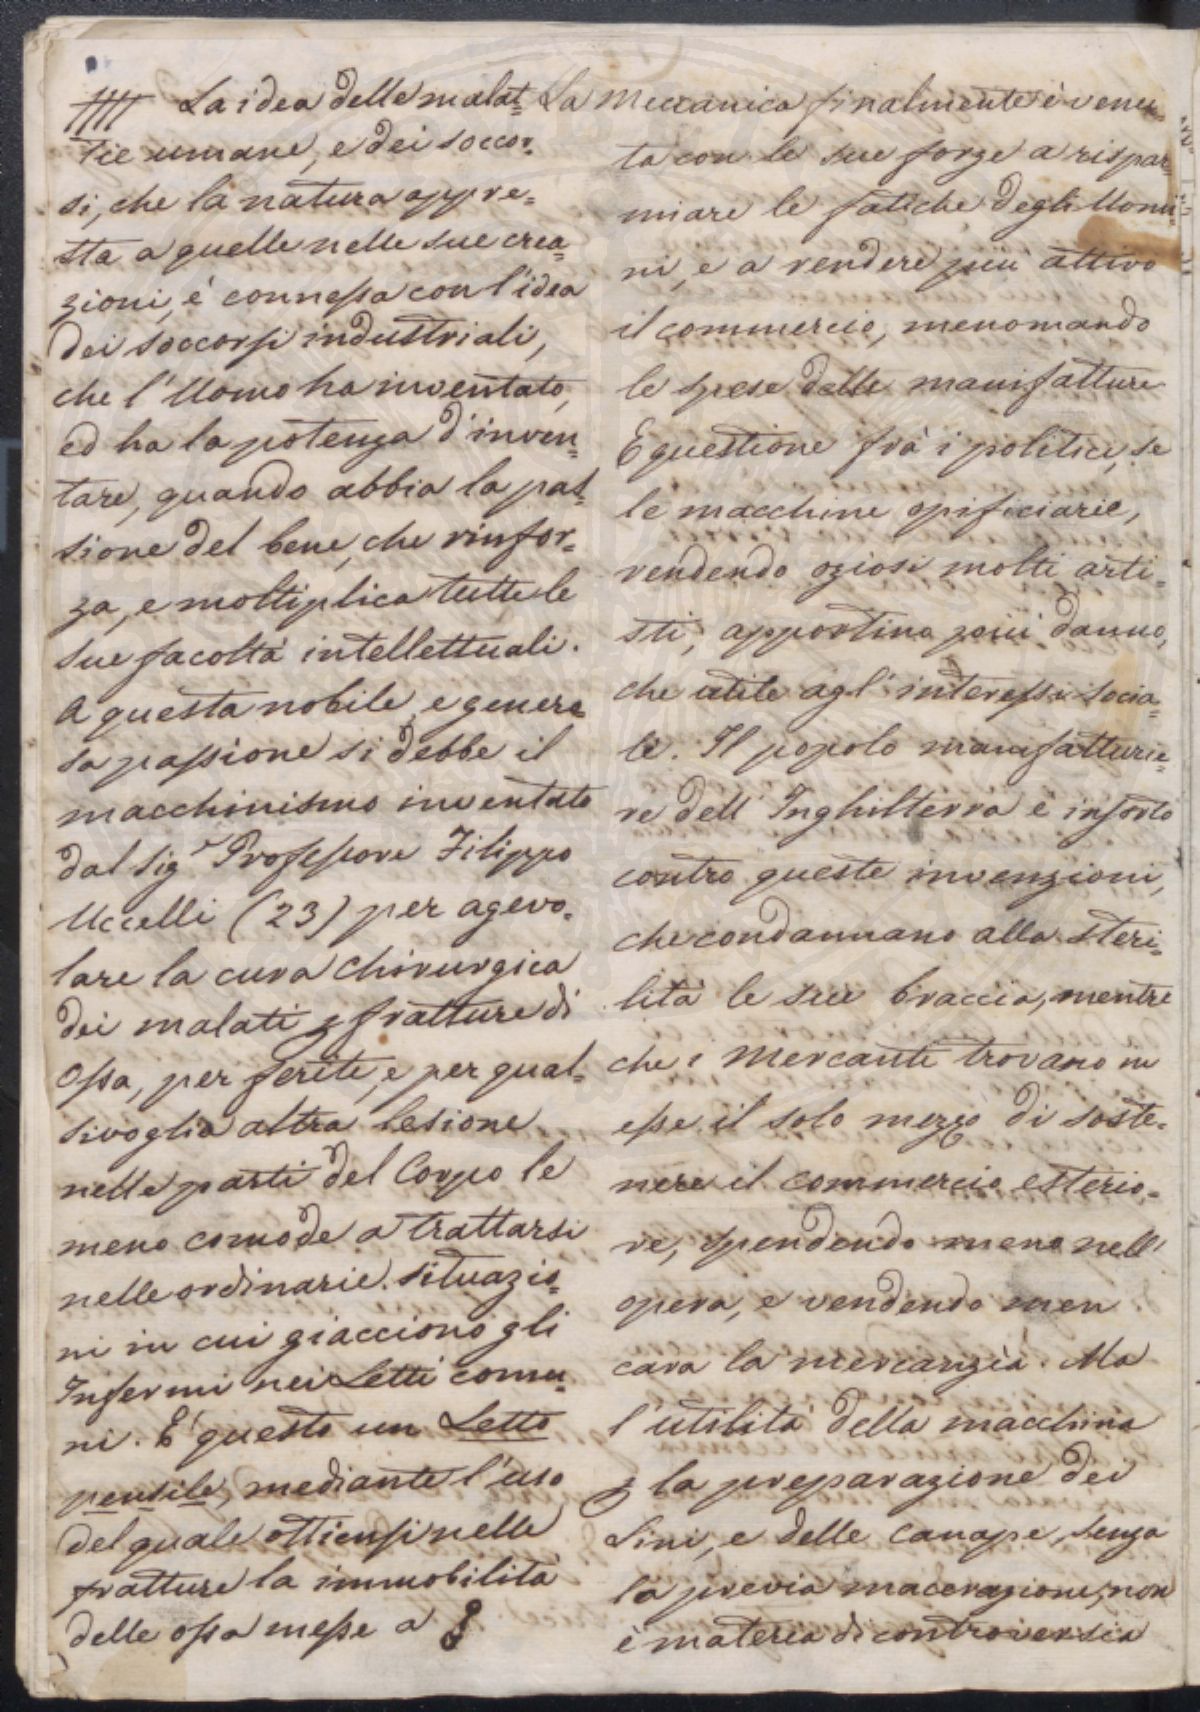 La idea delle malat=
tie umane, e dei soccor=
si, che la natura appre=
sta a quelle nelle sue crea=
zioni, é connessa con l'idea
dei soccorsi industriali,
che l'Uomo ha inventato,
ed ha la potenza d'inven=
tare, quando abbia la pas=
sione del bene, che rinfor=
za, e moltiplica tutte le
sue facoltà intellettuali.
A questa nobile, e genero=
sa passione si debbe il
macchinismo inventato
dal Sigr Professore Filippo
Uccelli (23) per agevo=
lare la cura chirurgica
dei malati p fratture di
Ossa, per ferite, e per qual=
sivoglia altra lesione
nelle parti del Corpo le
meno comode a trattarsi
nelle ordinarie situazio=
ni in cui giacciono gli
Infermi nei Letti comu=
ni. È questo un Letto
pensile, mediante l'uso
del quale ottiensi nelle
fratture la immobilità
delle ossa messe a
La Meccanica finalmente è venu=
ta con le sue forze a rispar=
miare le fatiche degli Uomi=
ni, e a rendere più attivo
il commercio, menomando
le spese delle manifatture
È questione frà i politici, se
le macchine opificiarie,
rendendo oziosi molti arti=
sti, apportino più danno,
che utile agl'interessi socia=
li. Il popolo manifatturie=
re dell'Inghilterra è insorto
contro queste invenzioni,
che condannano alla steri=
lità le sue braccia, mentre
che i Mercanti trovano in
esse il solo mezzo di soste=
nere il commercio esterio=
re, spendendo meno nell'
opera, e vendendo men
cara la mercanzia. Ma
l'utilità della macchina
p la preparazione dei
Lini, e delle Canape, senza
la previa macerazione, non
è materia di controversia